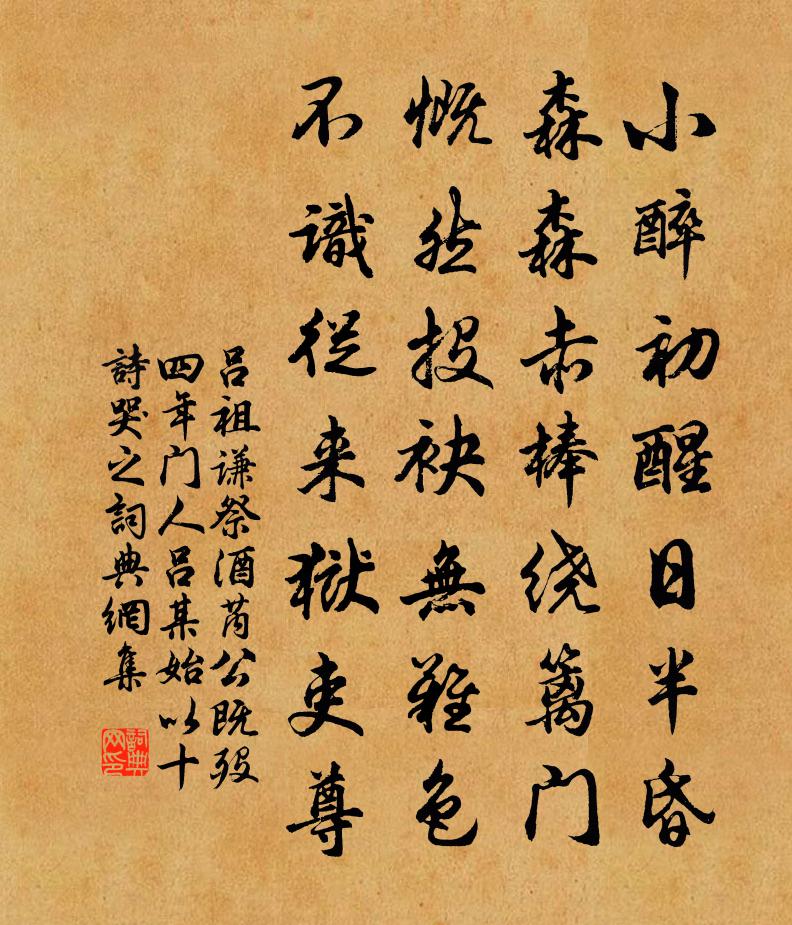 小醉初醒日半昏
森森赤棒绕篱门
慨然投袂無難色
不識從来獄吏尊
吕祖谦祭酒芮公既殁
四年门人吕某始以十
詩哭之詞典網集
詞典网印